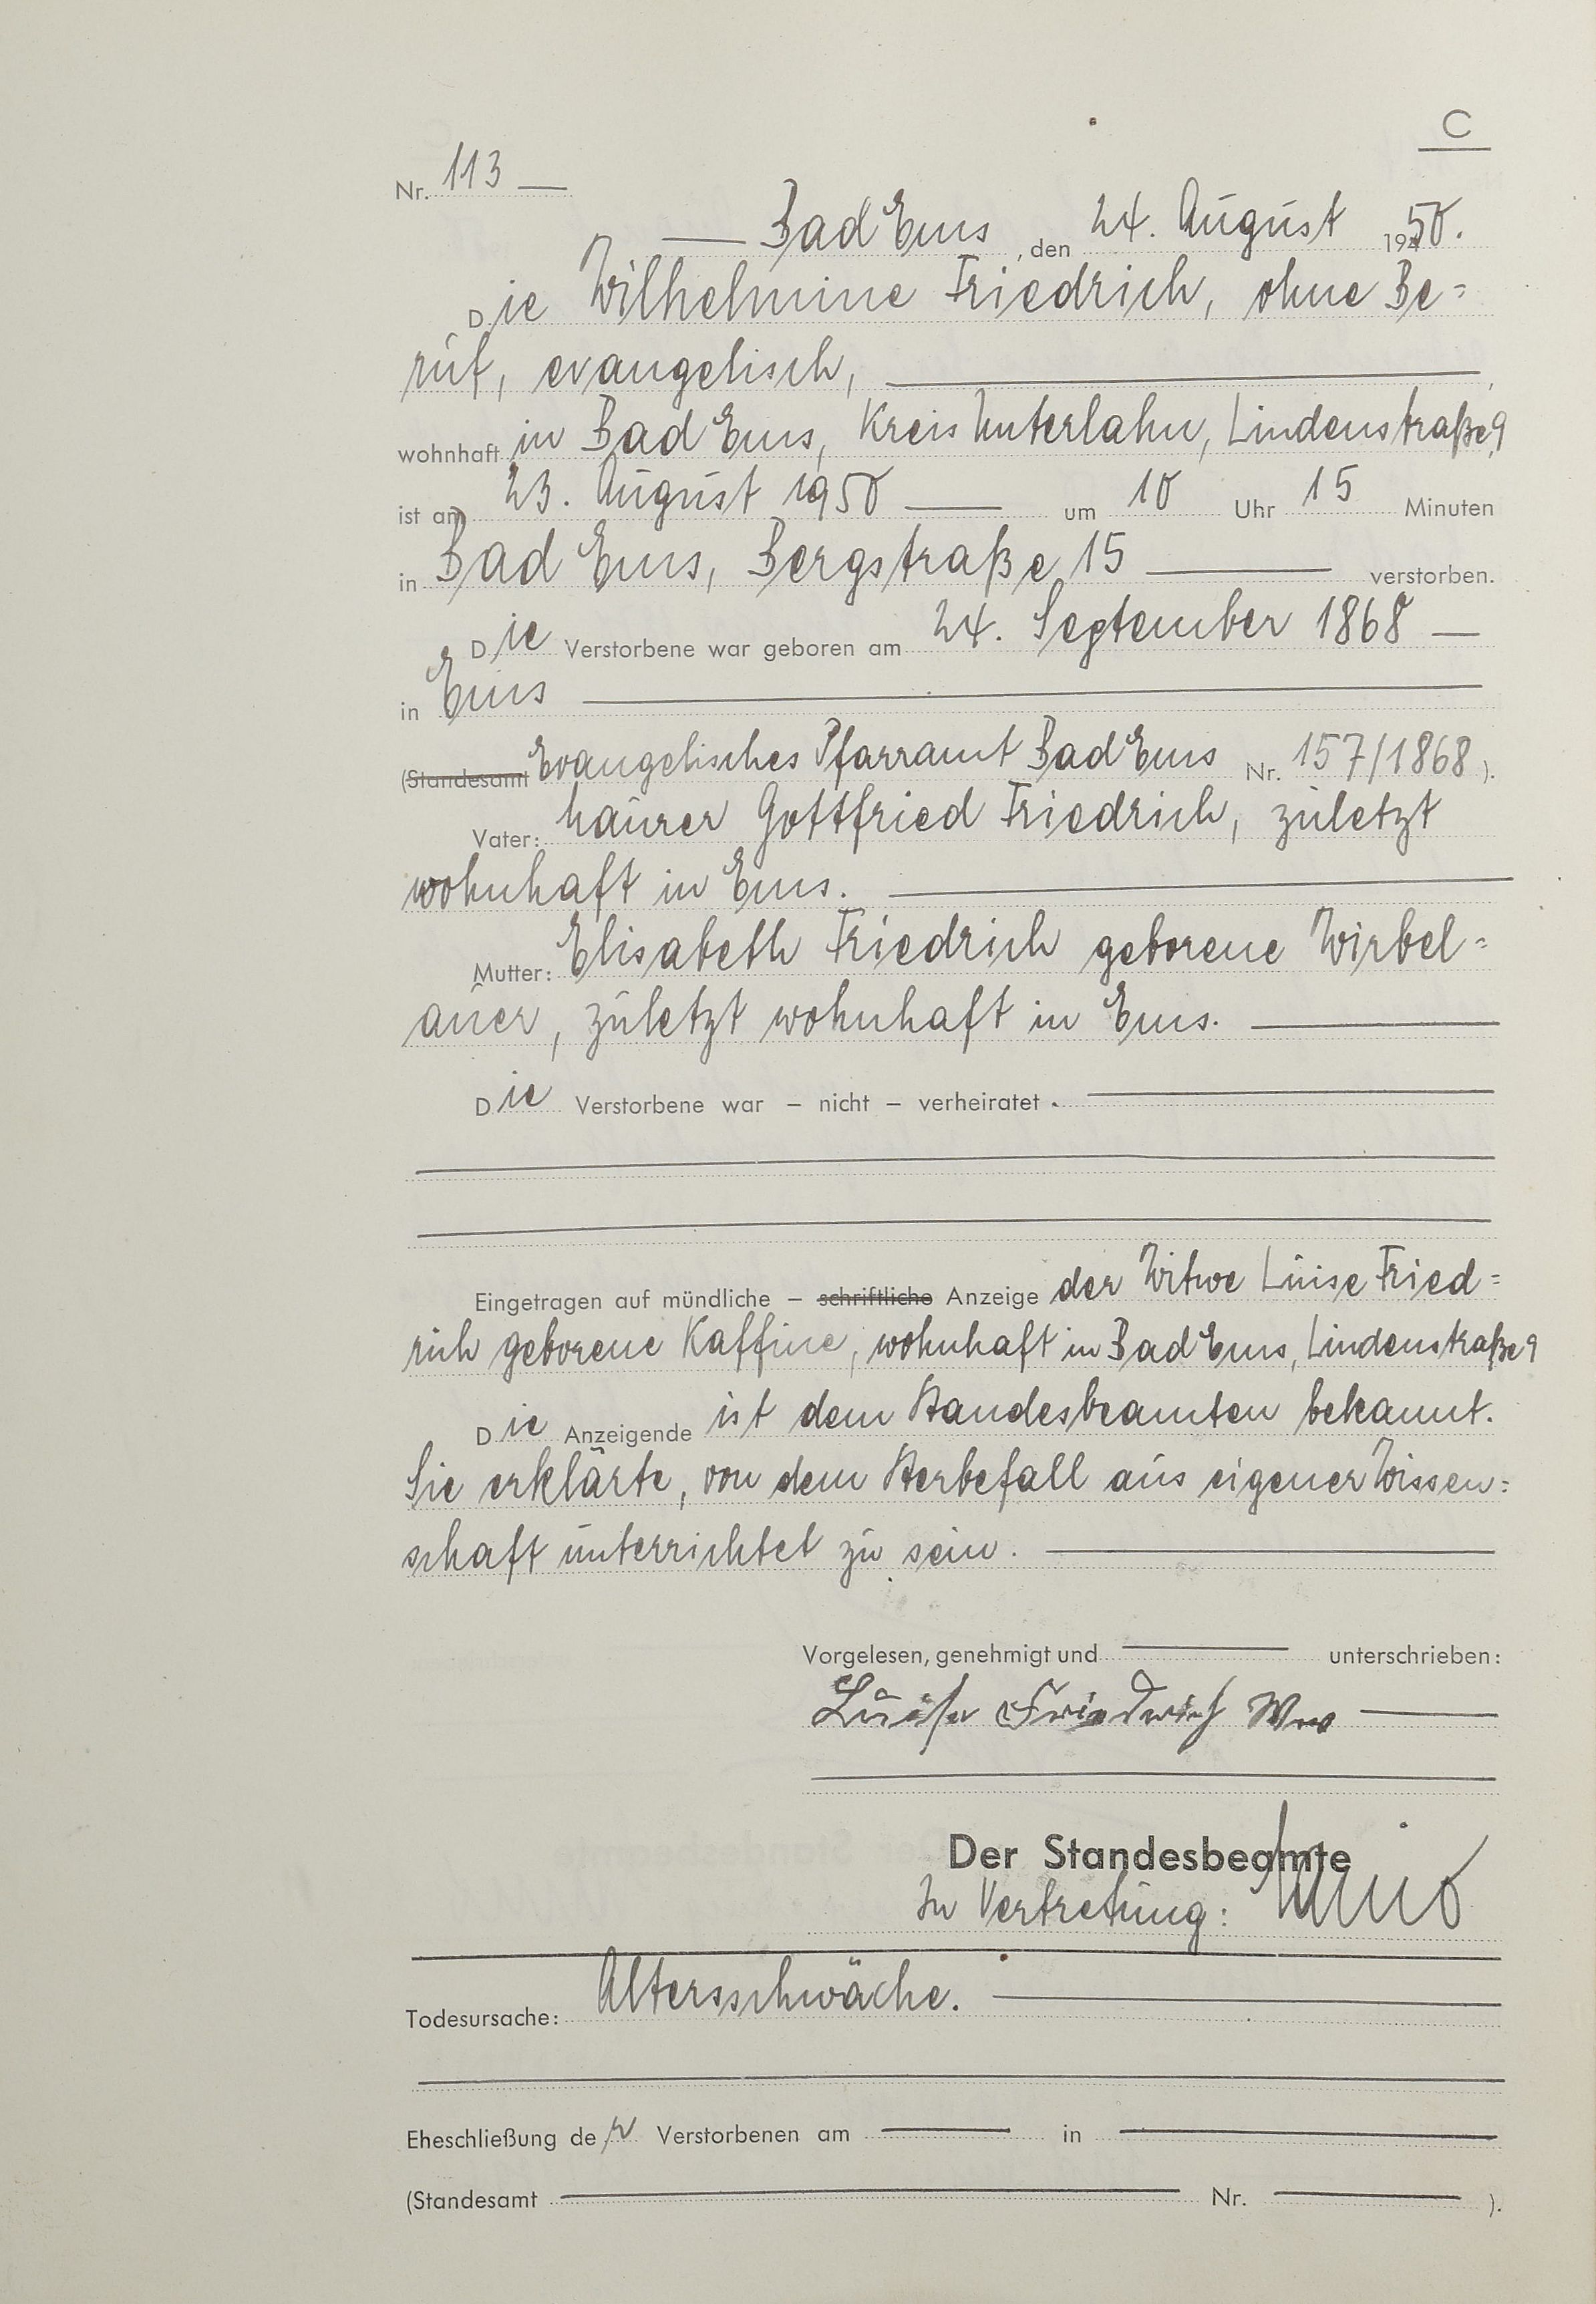 C
Nr. 113 —
— Bad Ems, den 24. August 1950.
Die Wilhelmine Friedrich, ohne Be=
ruf, evangelisch, —,
wohnhaft in Bad Ems, Kreis Unterlahn, Lindenstraße 9,
ist am 23. August 1950 — um 10 Uhr 15 Minuten
in Bad Ems, Bergstraße 15 — verstorben.
Die Verstorbene war geboren am 24. September 1868 —
in Ems —
(Standesamt Evangelisches Pfarramt Bad Ems Nr. 157/1868).
Vater: Maurer Gottfried Friedrich, zuletzt
wohnhaft in Ems. —
Mutter: Elisabeth Friedrich geborene Wirbel=
auer, zuletzt wohnhaft in Ems. —
Die Verstorbene war – nicht – verheiratet. —
Eingetragen auf mündliche – schriftliche Anzeige der Witwe Luise Fried=
rich geborene Kaffine, wohnhaft in Bad Ems, Lindenstraße 9
Die Anzeigende ist dem Standesbeamten bekannt.
Sie erklärte, von dem Sterbefall aus eigener Wissen=
schaft unterrichtet zu sein. —
Vorgelesen, genehmigt und — unterschrieben:
Luise Friedrich Wwe —
Der Standesbeamte
In Vertretung:
Todesursache: Altersschwäche. —
Eheschließung der Verstorbenen am — in —
(Standesamt — Nr. — ).